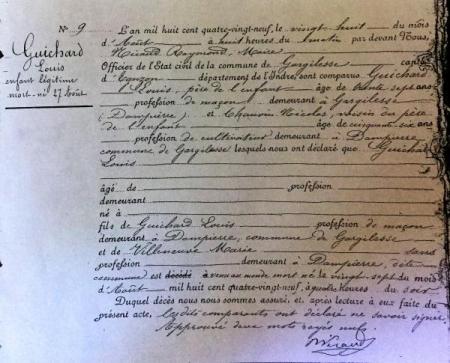 N° 9
Guichard
Louis
enfant légitime
mort-né 27 Août
L'an mil huit cent quatre-vingt-neuf, le vingt huit du mois
d'Août à huit heures du matin par devant Nous,
Raymond, Maire
Officier de l'État civil de la commune de Gargilesse canton
d' département de l'Indre, sont comparus Guichard
Louis, père de l'enfant âgé de trente sept ans
profession de maçon demeurant à Gargilesse
(Dampierre) et Chauvin Nicolas, voisin du père
de l'enfant âgé de cinquante six ans
profession de cultivateur demeurant à Dampierre
commune de Gargilesse lesquels nous ont déclaré que Guichard
Louis
âgé de profession
demeurant
né à
fils de Guichard Louis profession de maçon
demeurant à Dampierre, commune de Gargilesse
et de Villeneuve Marie sans
profession demeurant à Dampierre, dite
commune est décédé à venu au monde mort né le vingt sept du mois
d'Août mil huit cent quatre-vingt-neuf, à quatre heures du soir
Duquel décès nous nous sommes assuré, et, après lecture à eux faite du
présent acte, lesdits comparants ont déclaré ne savoir signer.
Approuvé deux mots rayés nuls.